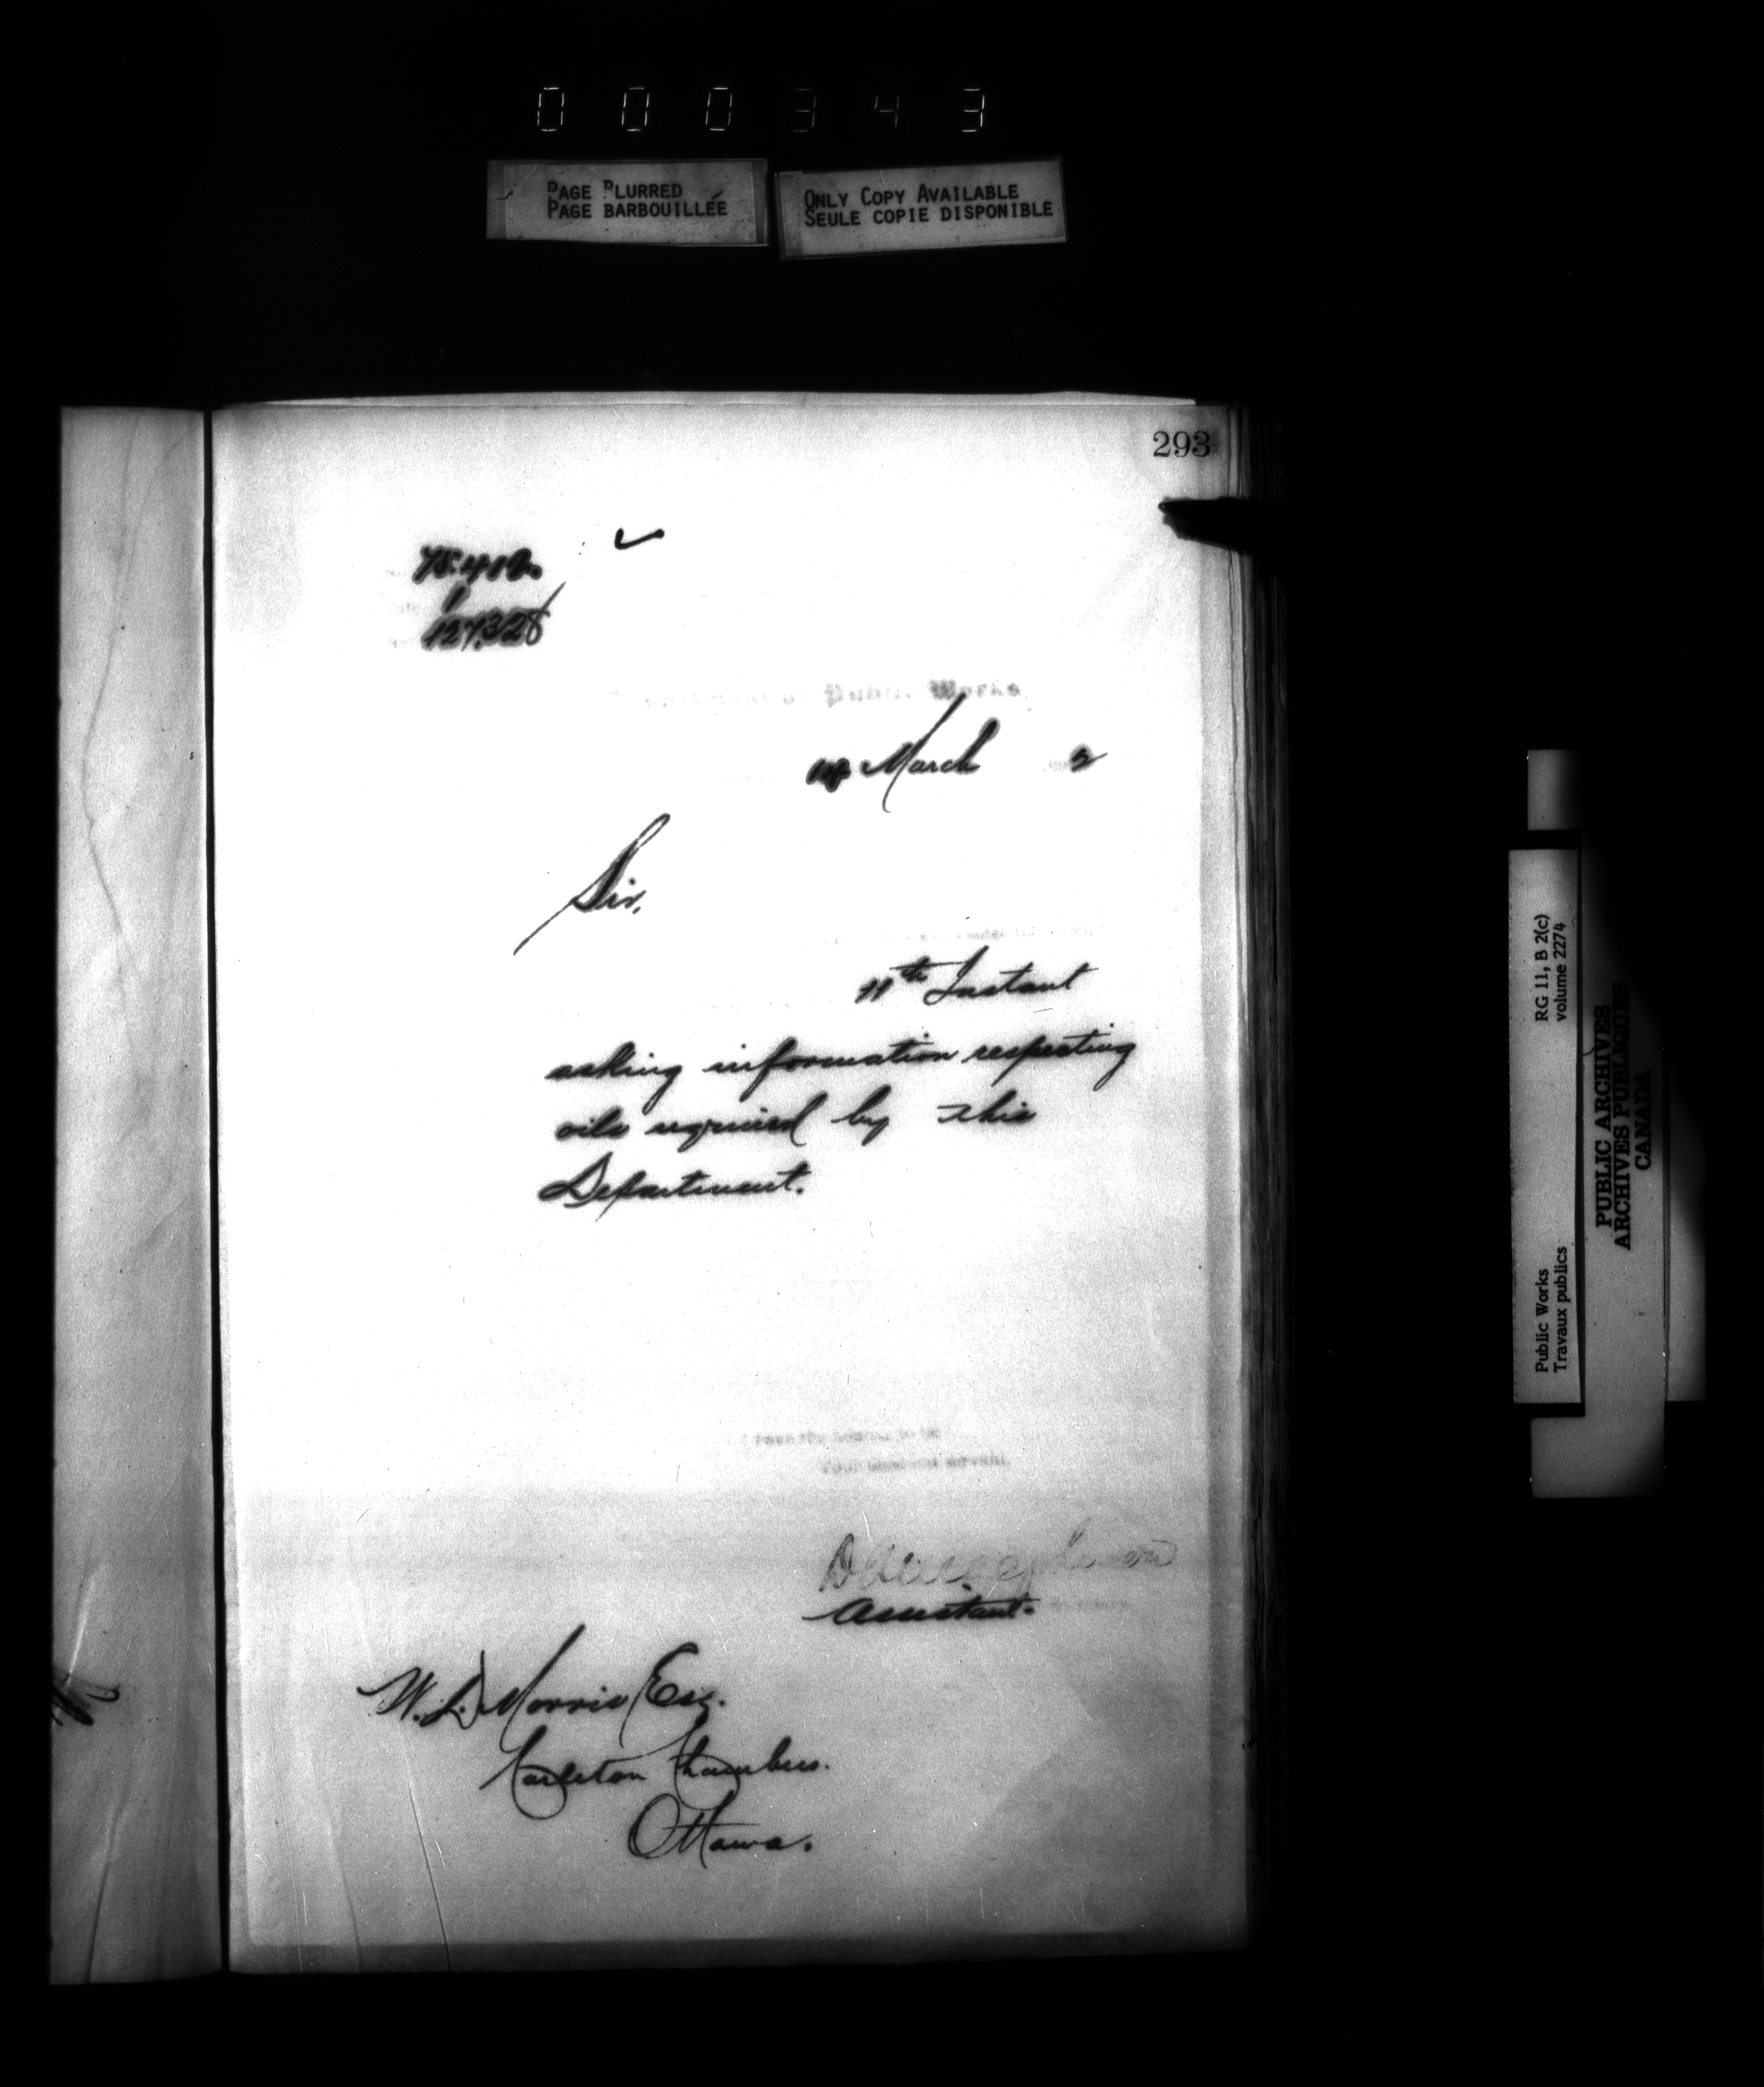 000343
PAGE BLURRED
PAGE BARBOUILLÉE
ONLY COPY AVAILABLE
SEULE COPIE DISPONIBLE
293
127,328
Public Works
14 March 2
Sir,
11th Instant
asking information respecting
oils required by this
Department.
I have the honour to be
Your obedient servant,
Assistant.
W. D. Morris Esq.
Carleton Chambers.
Ottawa.
RG 11, B 2(c)
volume 2274
Public Works
Travaux publics
PUBLIC ARCHIVES
ARCHIVES PUBLIQUES
CANADA